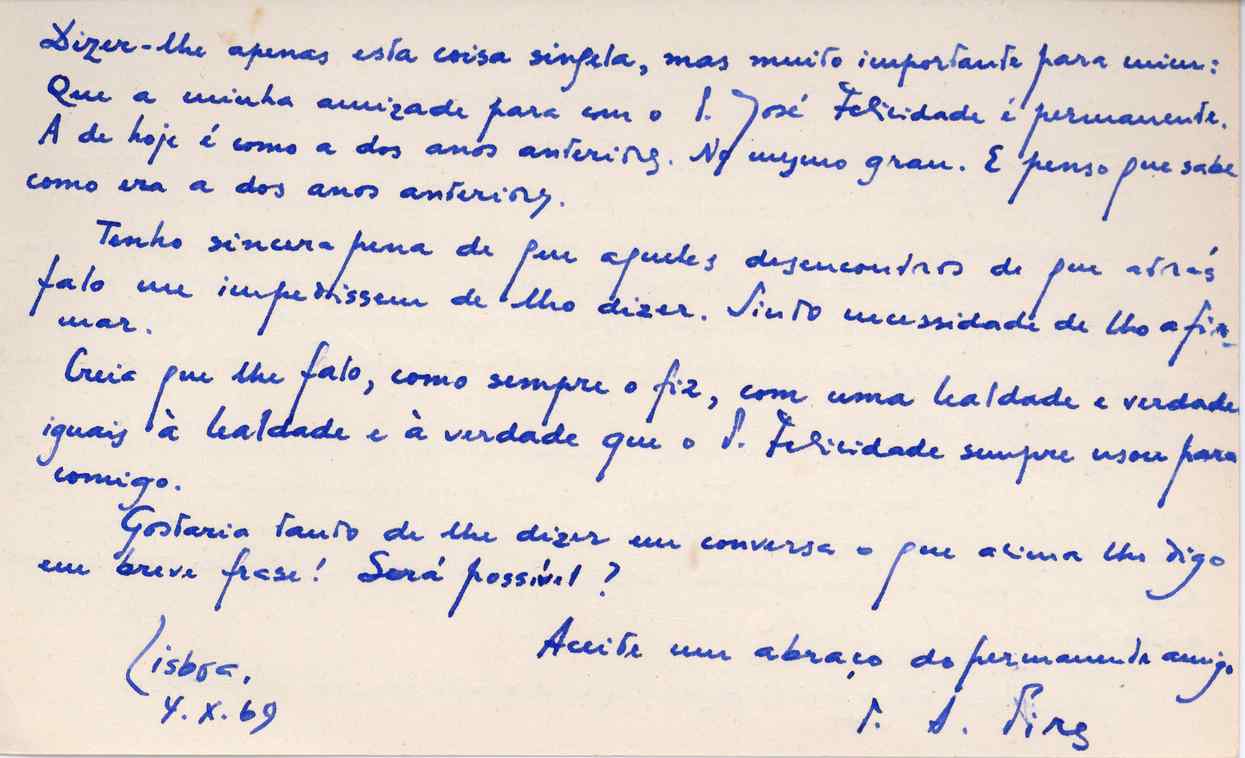 Dizer-lhe apenas esta coisa singela, mas muito importante para mim:
Que a minha amizade para com o P. José Felicidade é permanente.
A de hoje é como a dos anos anteriores. No mesmo grau. E penso que sabe
como era a dos anos anteriores.
Tenho sincera pena de que aqueles desencontros de que atrás
falo me impedissem de lho dizer. Sinto necessidade de lho afir-
mar.
Creia que lhe falo, como sempre o fiz, com uma lealdade e verdade
iguais à lealdade e à verdade que o P. Felicidade sempre usou para
comigo.
Gostaria tanto de lhe dizer em conversa o que acima lhe digo
em breve frase! Será possível?
Aceite um abraço do permanente amigo
Lisboa,
4.X.69
P. A. Pires